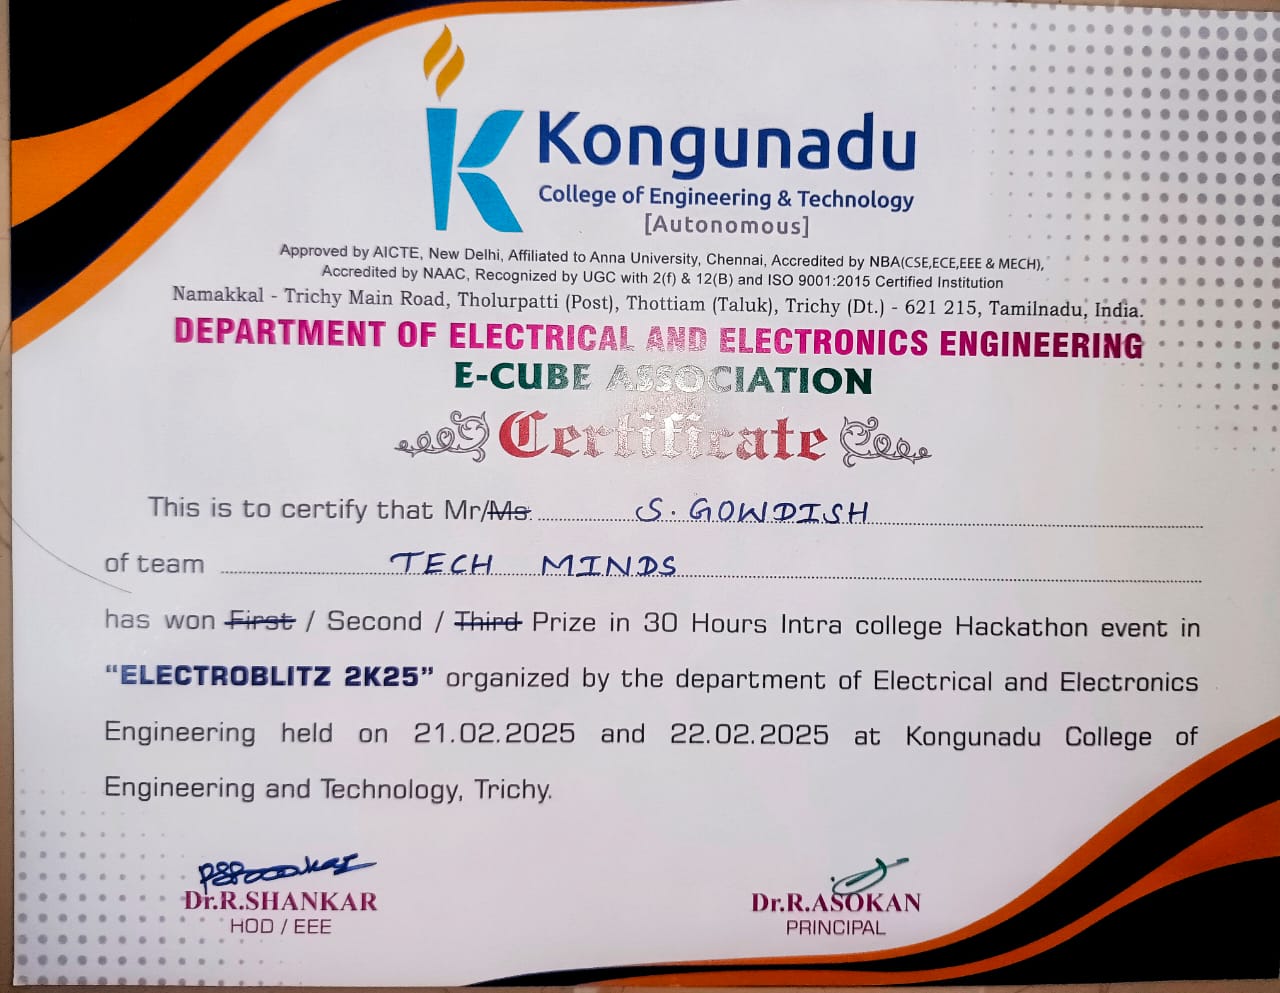 Kongunadu
College of Engineering & Technology
[Autonomous]
Approved by AICTE, New Delhi, Affiliated to Anna University, Chennai, Accredited by NBA(CSE,ECE,EEE & MECH),
Accredited by NAAC, Recognized by UGC with 2(f) & 12(B) and ISO 9001:2015 Certified Institution
Namakkal - Trichy Main Road, Tholurpatti (Post), Thottiam (Taluk), Trichy (Dt.) - 621 215, Tamilnadu, India.
DEPARTMENT OF ELECTRICAL AND ELECTRONICS ENGINEERING
E-CUBE ASSOCIATION
Certificate
This is to certify that Mr/Ms. S. GOWDISH
of team TECH MINDS
has won First / Second / Third Prize in 30 Hours Intra college Hackathon event in
“ELECTROBLITZ 2K25” organized by the department of Electrical and Electronics
Engineering held on 21.02.2025 and 22.02.2025 at Kongunadu College of
Engineering and Technology, Trichy.
Dr.R.SHANKAR
HOD / EEE
Dr.R.ASOKAN
PRINCIPAL